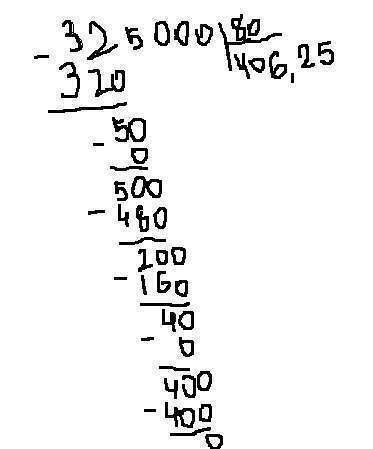 - 325000 80
320 406,25
- 50
0
500
- 480
200
- 160
40
- 0
400
- 400
0